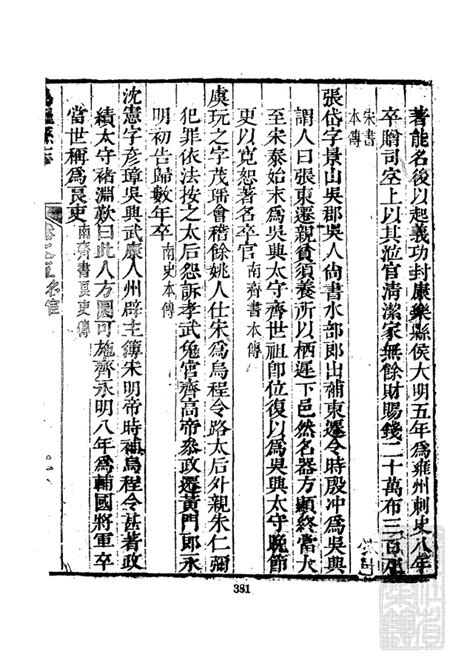 著能名後以起義功封康樂縣侯大明五年爲雍州刺史八年
卒贈司空上以其涖官清潔家無餘財賜錢二十萬布三百疋
宋書本傳
張岱字景山吳郡吳人尚書水部郎出補東遷令時殷沖爲吳興
謂人曰張東遷親貧須養所以栖遲下邑然名器方顯終當大
至宋泰始末爲吳興太守齊世祖卽位復以爲吳興太守晚節
更以寬恕著名卒官南齊書本傳
虞玩之字茂瑤會稽餘姚人仕宋爲烏程令路太后外親朱仁彌
犯罪依法按之太后怨訴孝武免官齊高帝參政遷黃門郎永
明初告歸數年卒南史本傳
沈憲字彥璋吳興武康人州辟主簿宋明帝時補烏程令甚著政
績太守褚淵歎曰此人方圓可施齊永明八年爲輔國將軍卒
當世稱爲良吏南齊書良吏傳
名宦
381